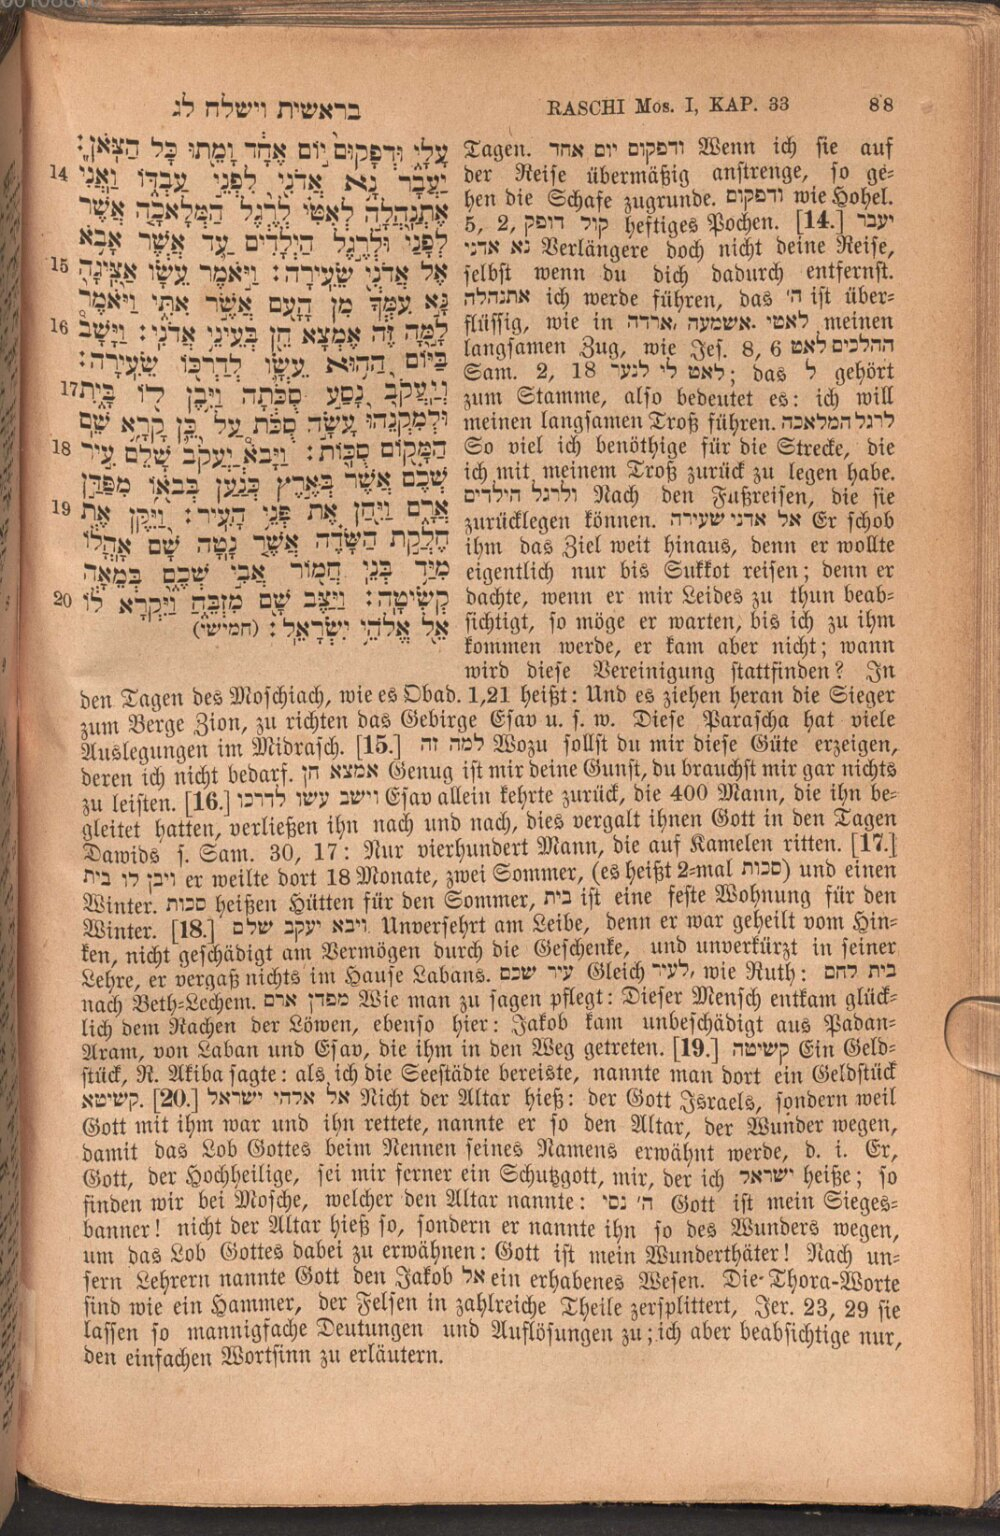 בראשית וישלח לג
RASCHI Mos. I, KAP. 33
88
עָלָי וּדְפָקוּם יוֹם אֶחָד וָמֵתוּ כָּל הַצֹּאן:
14 יַעֲבָר נָא אֲדֹנִי לִפְנֵי עַבְדּוֹ וַאֲנִי
אֶתְנָהֲלָה לְאִטִּי לְרֶגֶל הַמְּלָאכָה אֲשֶׁר
לְפָנַי וּלְרֶגֶל הַיְלָדִים עַד אֲשֶׁר אָבֹא
15 אֶל אֲדֹנִי שֵׂעִירָה: וַיֹּאמֶר עֵשָׂו אַצִּיגָה
נָּא עִמְּךָ מִן הָעָם אֲשֶׁר אִתִּי וַיֹּאמֶר
16 לָמָּה זֶּה אֶמְצָא חֵן בְּעֵינֵי אֲדֹנִי: וַיָּשָׁב
בַּיּוֹם הַהוּא עֵשָׂו לְדַרְכּוֹ שֵׂעִירָה:
17 וְיַעֲקֹב נָסַע סֻכֹּתָה וַיִּבֶן לוֹ בָּיִת
וּלְמִקְנֵהוּ עָשָׂה סֻכֹּת עַל כֵּן קָרָא שֵׁם
18 הַמָּקוֹם סֻכּוֹת: וַיָּבֹא יַעֲקֹב שָׁלֵם עִיר
שְׁכֶם אֲשֶׁר בְּאֶרֶץ כְּנַעַן בְּבֹאוֹ מִפַּדַּן
19 אֲרָם וַיִּחַן אֶת פְּנֵי הָעִיר: וַיִּקֶן אֶת
חֶלְקַת הַשָּׂדֶה אֲשֶׁר נָטָה שָׁם אָהֳלוֹ
מִיַּד בְּנֵי חֲמוֹר אֲבִי שְׁכֶם בְּמֵאָה
20 קְשִׂיטָה: וַיַּצֶּב שָׁם מִזְבֵּחַ וַיִּקְרָא לוֹ
אֵל אֱלֹהֵי יִשְׂרָאֵל: (חמישי)
Tagen. ודפקום יום אחד Wenn ich sie auf
der Reise übermäßig anstrenge, so ge-
hen die Schafe zugrunde. ודפקום wie Hohel.
5, 2, קול דופק heftiges Pochen. [14.] יעבר
נא אדני Verlängere doch nicht deine Reise,
selbst wenn du dich dadurch entfernst.
אתנהלה ich werde führen, das ה' ist über-
flüssig, wie in אשמעה ,ארדה. לאטי meinen
langsamen Zug, wie Jes. 8, 6 ההלכים לאט
Sam. 2, 18 לאט לי לנער; das ל gehört
zum Stamme, also bedeutet es: ich will
meinen langsamen Troß führen. לרגל המלאכה
So viel ich benöthige für die Strecke, die
ich mit meinem Troß zurück zu legen habe.
ולרגל הילדים Nach den Fußreisen, die sie
zurücklegen können. אל אדני שעירה Er schob
ihm das Ziel weit hinaus, denn er wollte
eigentlich nur bis Sukkot reisen; denn er
dachte, wenn er mir Leides zu thun beab-
sichtigt, so möge er warten, bis ich zu ihm
kommen werde, er kam aber nicht; wann
wird diese Vereinigung stattfinden? In
den Tagen des Moschiach, wie es Obad. 1,21 heißt: Und es ziehen heran die Sieger
zum Berge Zion, zu richten das Gebirge Esav u. s. w. Diese Parascha hat viele
Auslegungen im Midrasch. [15.] למה זה Wozu sollst du mir diese Güte erzeigen,
deren ich nicht bedarf. אמצא חן Genug ist mir deine Gunst, du brauchst mir gar nichts
zu leisten. [16.] וישב עשו לדרכו Esav allein kehrte zurück, die 400 Mann, die ihn be-
gleitet hatten, verließen ihn nach und nach, dies vergalt ihnen Gott in den Tagen
Dawids s. Sam. 30, 17: Nur vierhundert Mann, die auf Kamelen ritten. [17.]
ויבן לו בית er weilte dort 18 Monate, zwei Sommer, (es heißt 2-mal סכות) und einen
Winter. סכות heißen Hütten für den Sommer, בית ist eine feste Wohnung für den
Winter. [18.] ויבא יעקב שלם Unversehrt am Leibe, denn er war geheilt vom Hin-
ken, nicht geschädigt am Vermögen durch die Geschenke, und unverkürzt in seiner
Lehre, er vergaß nichts im Hause Labans. עיר שכם Gleich לעיר, wie Ruth: בית לחם
nach Beth-Lechem. מפדן ארם Wie man zu sagen pflegt: Dieser Mensch entkam glück-
lich dem Rachen der Löwen, ebenso hier: Jakob kam unbeschädigt aus Padan-
Aram, von Laban und Esav, die ihm in den Weg getreten. [19.] קשיטה Ein Geld-
stück, R. Akiba sagte: als ich die Seestädte bereiste, nannte man dort ein Geldstück
קשיטא. [20.] אל אלהי ישראל Nicht der Altar hieß: der Gott Israels, sondern weil
Gott mit ihm war und ihn rettete, nannte er so den Altar, der Wunder wegen,
damit das Lob Gottes beim Nennen seines Namens erwähnt werde, d. i. Er,
Gott, der Hochheilige, sei mir ferner ein Schutzgott, mir, der ich ישראל heiße; so
finden wir bei Mosche, welcher den Altar nannte: ה' נסי Gott ist mein Sieges-
banner! nicht der Altar hieß so, sondern er nannte ihn so des Wunders wegen,
um das Lob Gottes dabei zu erwähnen: Gott ist mein Wunderthäter! Nach un-
sern Lehrern nannte Gott den Jakob אל ein erhabenes Wesen. Die Thora-Worte
sind wie ein Hammer, der Felsen in zahlreiche Theile zersplittert, Jer. 23, 29 sie
lassen so mannigfache Deutungen und Auflösungen zu; ich aber beabsichtige nur,
den einfachen Wortsinn zu erläutern.